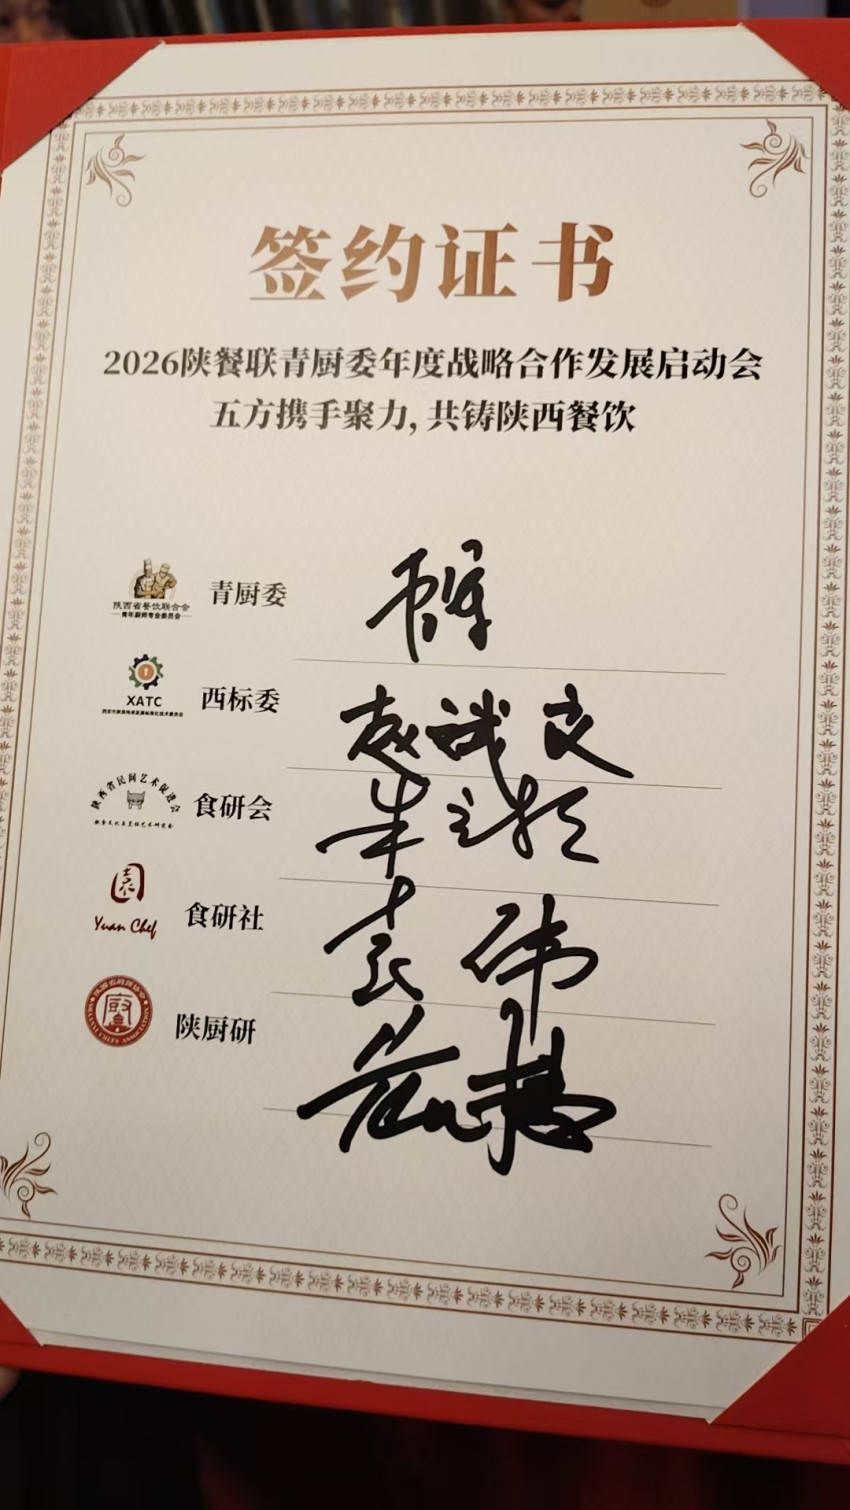 签约证书
2026陕餐联青厨委年度战略合作发展启动会
五方携手聚力,共铸陕西餐饮
陕西省餐饮联合会
青年厨师专业委员会
青厨委
XATC
西标委
赵诚文
陕西省民间艺术促进会
食研会
Yuan Chef
食研社
袁伟
陕厨研